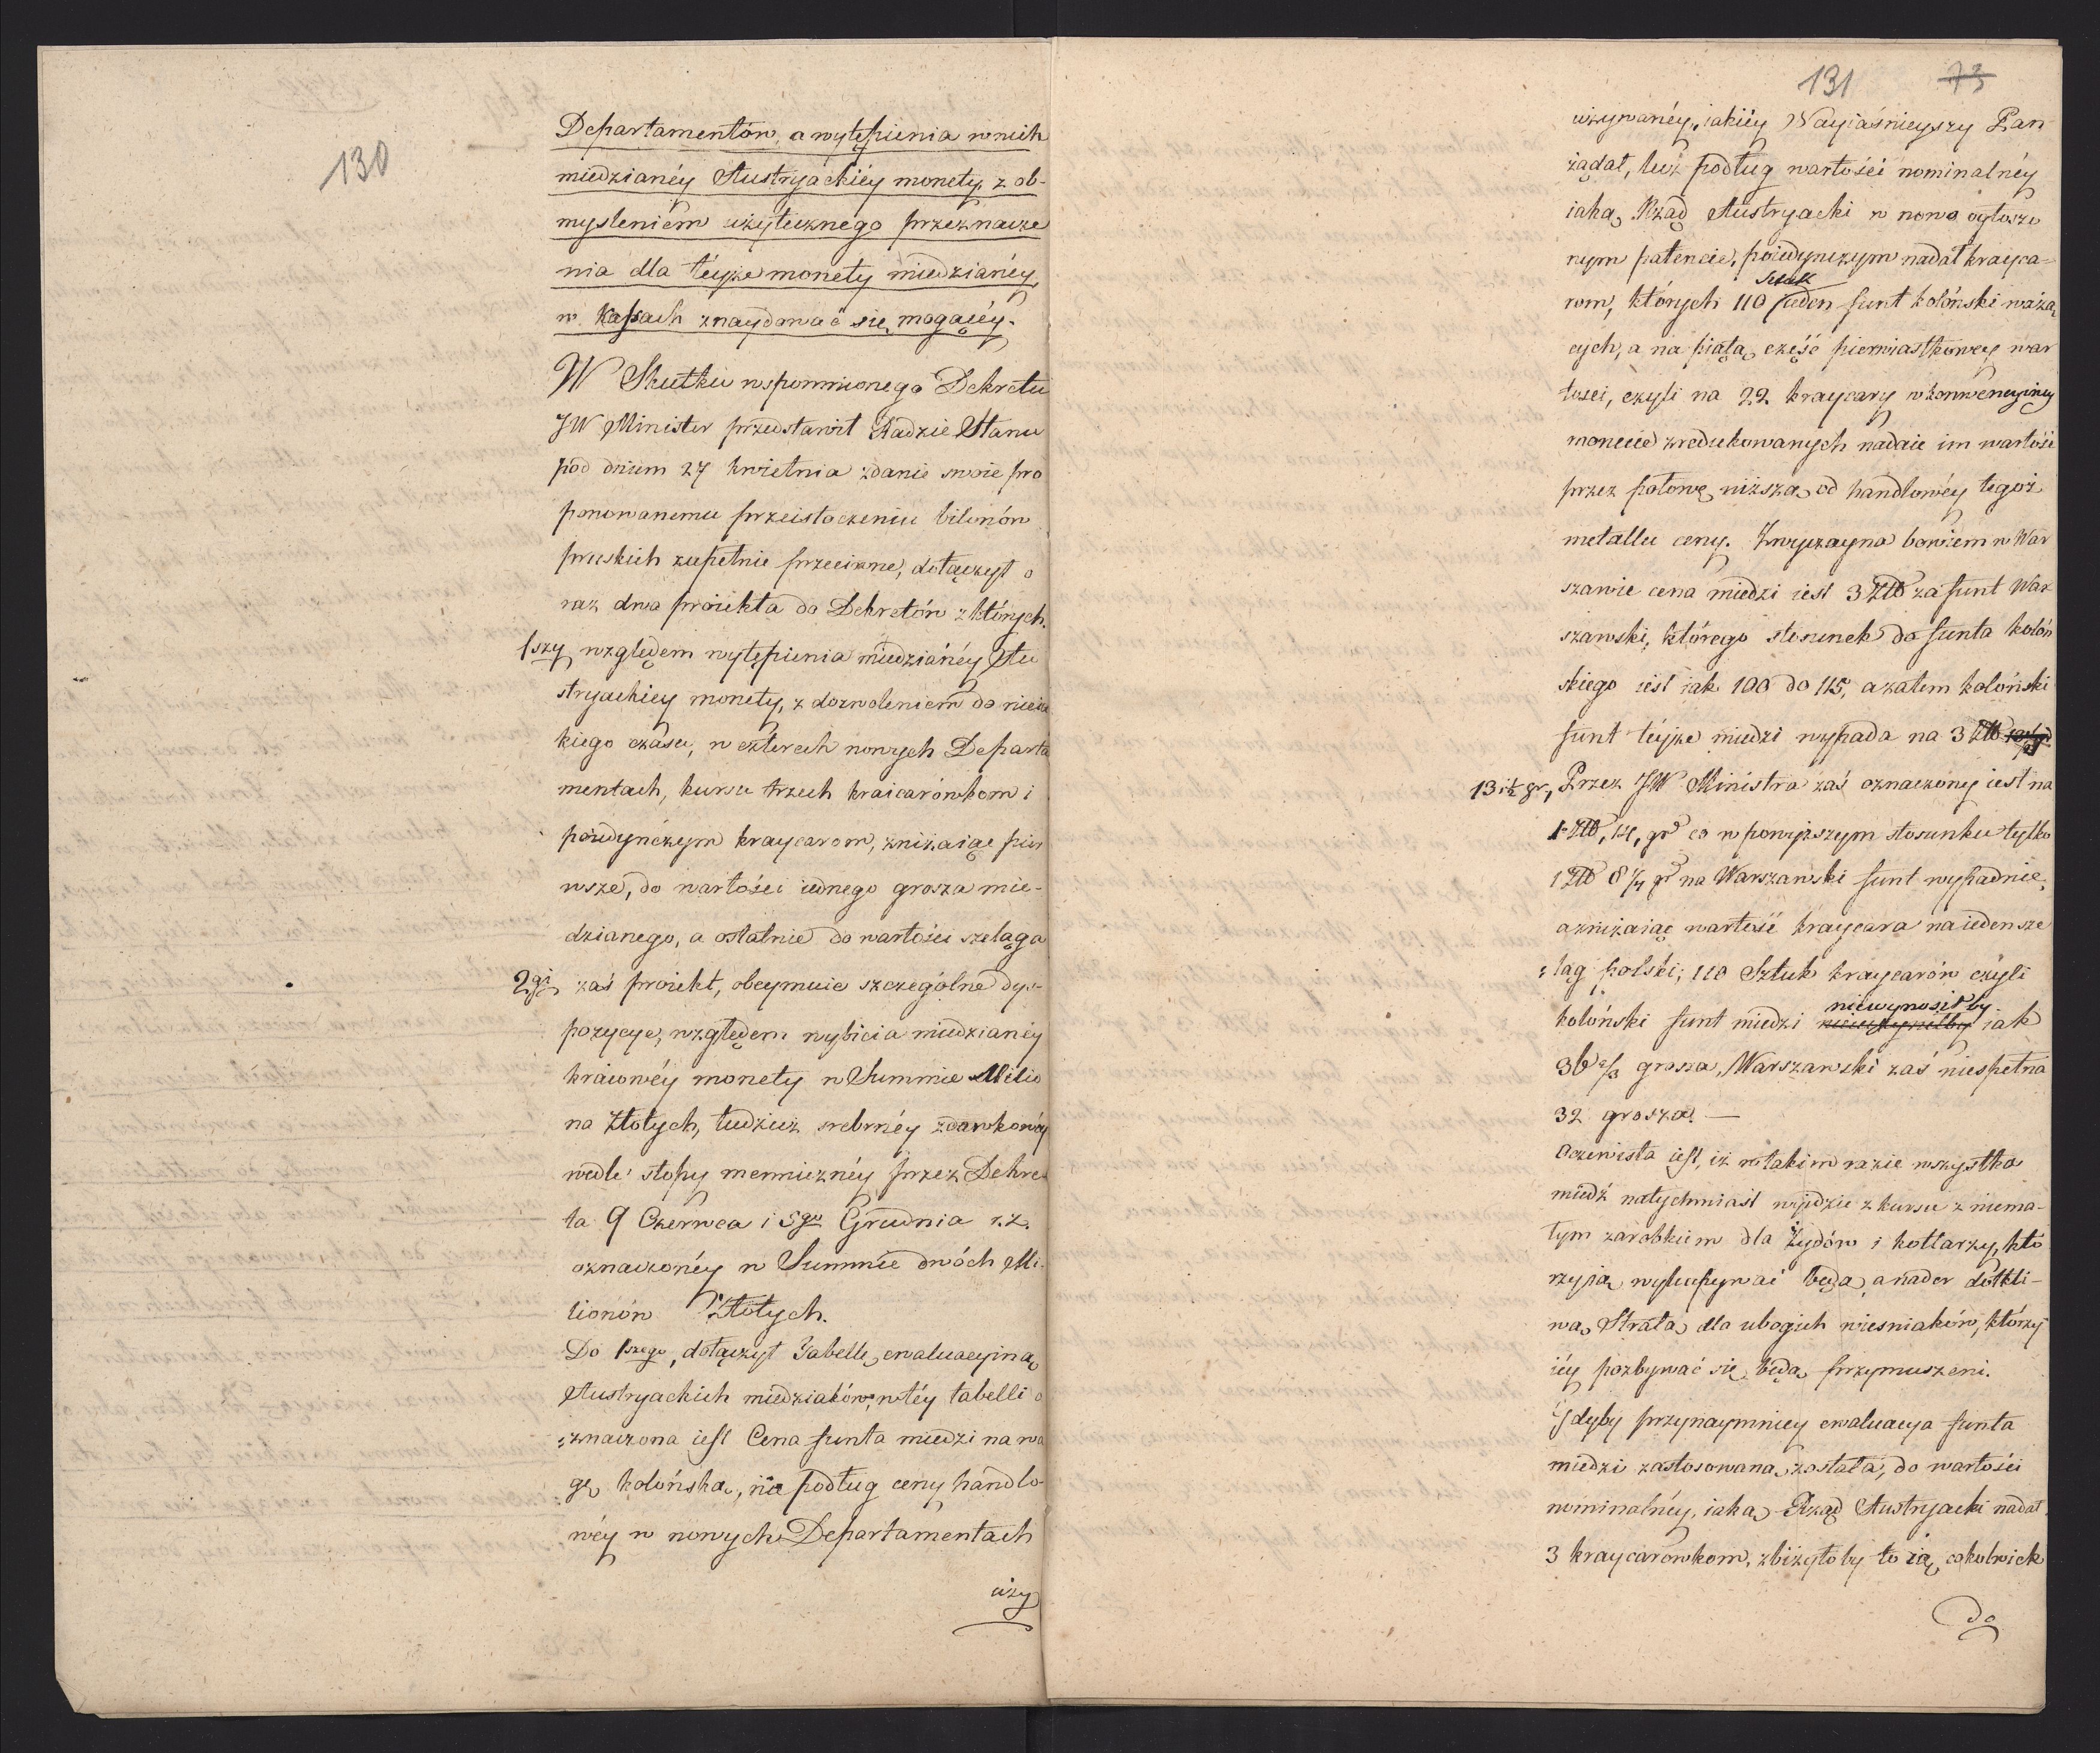 130
Departamentów, a wytępienia w nich
miedzianéy Austryackiéy monety, z ob-
mysleniem użytecznego przeznacze
nia dla téyże monety miedzianéy,
w Kassach znaydować się mogącéy.
W Skutku wspomnionego Dekretu
JW Minister przedstawił Radzie Stanu
pod dniem 27 kwietnia zdanie swoie pro
ponowanemu przeistoczeniu bilonów
pruskich zupełnie przeciwne, dołączył o
raz dwa proiekta do Dekretów z których.
1szy względem wytępienia miedzianéy Au
stryackiey monety, z dozwoleniem do nieia
kiego czasu, w czterech nowych Departa
mentach, kursu trzech kraicarówkom i
poiedyńczym kraycarom, zniżaiąc pier
wsze, do wartości iednego grosza mie-
dzianego, a ostatnie do wartości szeląga
2gi zaś proiekt, obeymuie szczególne dys-
pozycye, względem wybicia miedzianéy
kraiowéy monety w Summie Millio
na Złotych, tudzież srebrnéy zdawkowéy
wedle stopy mennicznéy przez Dekre
ta 9 Czerwca i 5go Grudnia r.z.
oznaczonéy w Summie dwóch Mi-
lionów Złotych.
Do 1szego, dołączył Tabellę ewaluacyiną
Austryackich miedziaków; w téy tabelli o
znaczona iest Cena funta miedzi na wa
gę kolońską, nie podług ceny handlo-
wéy w nowych Departamentach
uży
131 73
używanéy, iakiéy Nayiaśnieyszy Pan
żądał, lecz podług wartości nominalnéy
iaką Rząd Austryacki w nowo ogłoszo
nym patencie, poiedynczym nadał krayca-
Sztuk
rom, których 110 ieden funt koloński ważą
cych, a na piątą część pierwiastkowey war
tości, czyli na 22 kraycary w konwencyiney
monecie zredukowanych nadaie im wartość
przez połowę niższą od handlowéy tegoż
metallu ceny. Zwyczayna bowiem w War
szawie cena miedzi iest 3 Złł za funt War
szawski, którego stosunek do funta koloń
skiego iest iak 100 do 115, a zatem koloński
funt téyże miedzi wypada na 3 Złł
13 1/2 gr, Przez JW Ministra zaś oznaczony iest na
1 Złł, 14, gr co w powyższym stosunku tylko
1 Złł 8 1/4 gr na Warszawski funt wypadnie,
a zniżaiąc wartość kraycara na ieden sze
ląg polski; 110 Sztuk kraycarów czyli
niewynosił by
koloński funt miedzi iak
36 2/3 grosza, Warszawski zaś niespełna
32 grosza. —
Oczewista iest, iż w takim razie wszystka
miedź natychmiast wyidzie z kursu z niema-
łym zarobkiem dla Żydów i kotlarzy, któ
rzy ią wykupywać będą, a nader dotkli-
wą Stratą dla ubogich wiesniaków, którzy
iéy pozbywać się będą przymuszeni.
Gdyby przynaymniey ewaluacya funta
miedzi zastosowana została, do wartości
nominalnéy, iaką Rząd Austryacki nadał
3 kraycarowkom, zbiżyłoby to ią cokolwiek
do